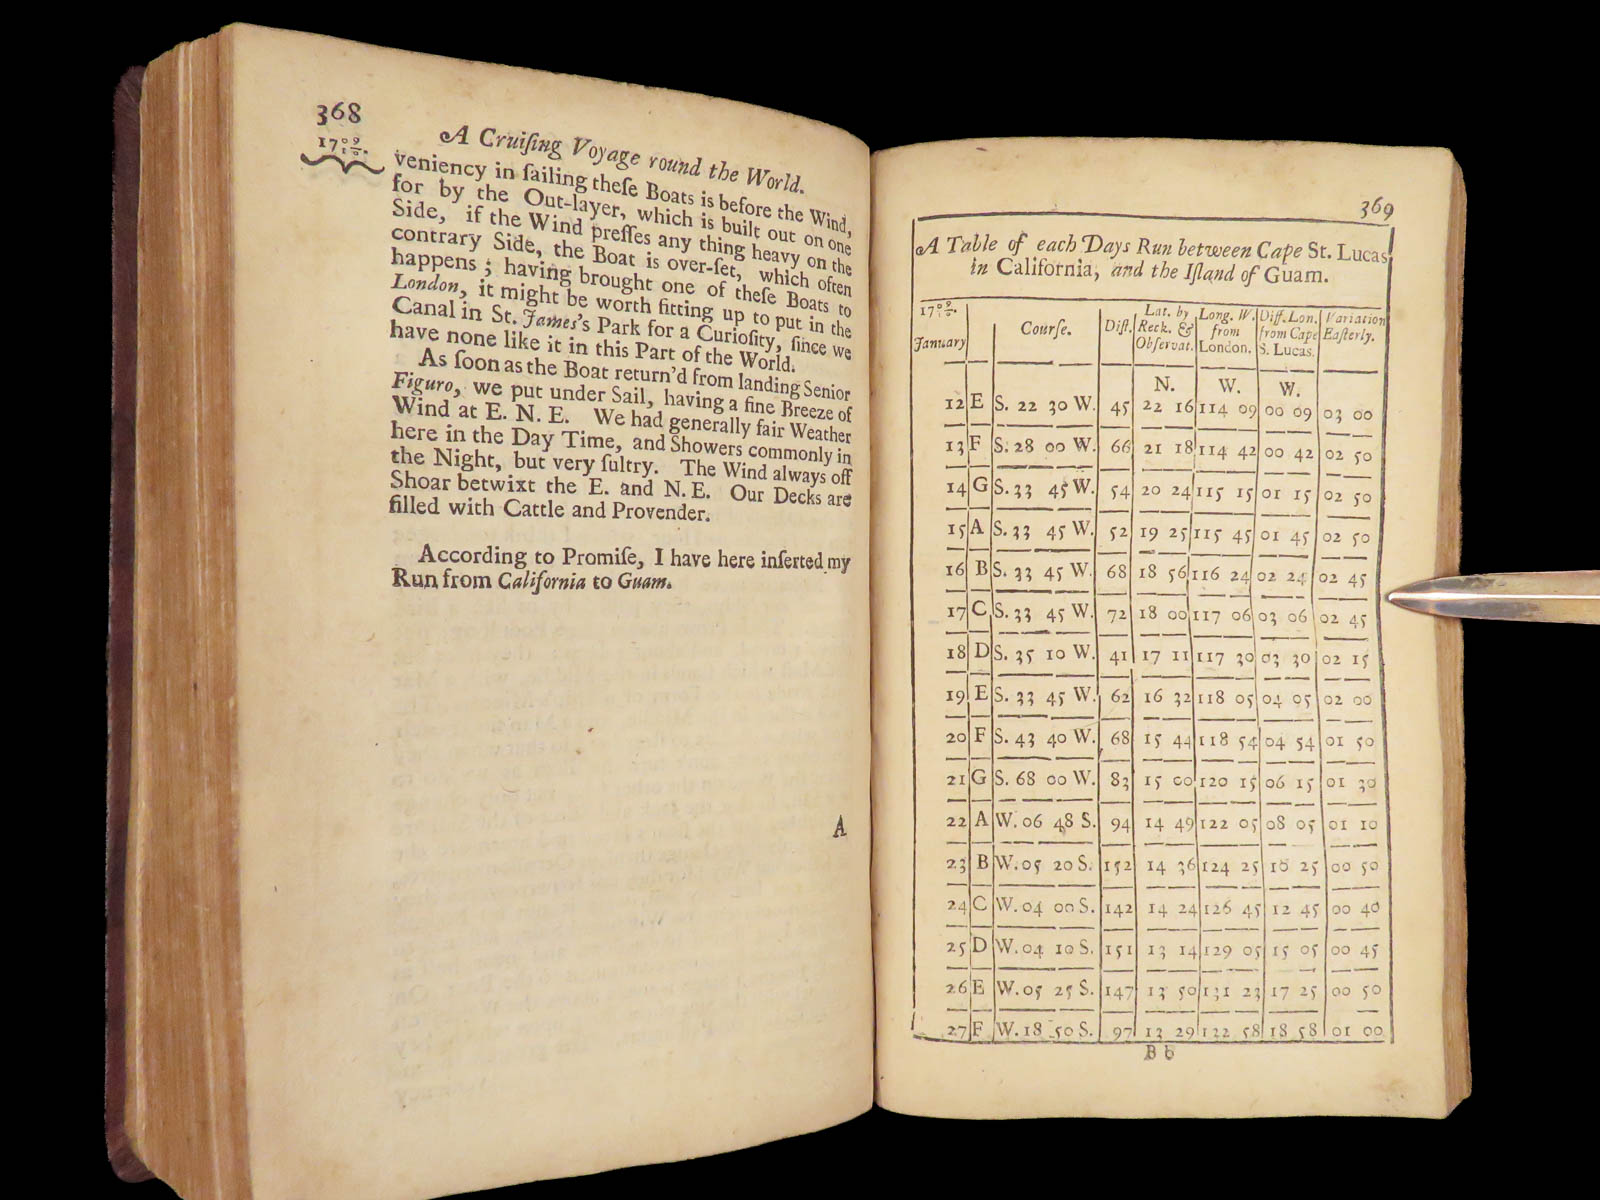 368
17 0 9/1 0.
A Cruiſing Voyage round the World.
veniency in ſailing theſe Boats is before the Wind,
for by the Out-layer, which is built out on one
Side, if the Wind preſſes any thing heavy on the
contrary Side, the Boat is over-ſet, which often
happens; having brought one of theſe Boats to
London, it might be worth fitting up to put in the
Canal in St. James's Park for a Curioſity, ſince we
have none like it in this Part of the World.
As ſoon as the Boat return'd from landing Senior
Figuro, we put under Sail, having a fine Breeze of
Wind at E. N. E. We had generally fair Weather
here in the Day Time, and Showers commonly in
the Night, but very ſultry. The Wind always off
Shoar betwixt the E. and N. E. Our Decks are
filled with Cattle and Provender.
According to Promiſe, I have here inſerted my
Run from California to Guam.
A
369
A Table of each Days Run between Cape St. Lucas
in California, and the Iſland of Guam.
17 0 9/1 0. January Courſe. Diſt. Lat. by Reck. & Obſervat. Long. W. from London. Diff. Lon. from Cape S. Lucas. Variation Eaſterly.
N. W. W.
12 E S. 22 30 W. 45 22 16 114 09 00 09 03 00
13 F S. 28 00 W. 66 21 18 114 42 00 42 02 50
14 G S. 33 45 W. 54 20 24 115 15 01 15 02 50
15 A S. 33 45 W. 52 19 25 115 45 01 45 02 50
16 B S. 33 45 W. 68 18 56 116 24 02 24 02 45
17 C S. 33 45 W. 72 18 00 117 06 03 06 02 45
18 D S. 35 10 W. 41 17 11 117 30 03 30 02 15
19 E S. 33 45 W. 62 16 32 118 05 04 05 02 00
20 F S. 43 40 W. 68 15 44 118 54 04 54 01 50
21 G S. 68 00 W. 83 15 00 120 15 06 15 01 30
22 A W. 06 48 S. 94 14 49 122 05 08 05 01 10
23 B W. 05 20 S. 152 14 36 124 25 10 25 00 50
24 C W. 04 00 S. 142 14 24 126 45 12 45 00 40
25 D W. 04 10 S. 151 13 14 129 05 15 05 00 45
26 E W. 05 25 S. 147 13 50 131 23 17 25 00 50
27 F W. 18 50 S. 97 13 29 132 58 18 58 01 00
B b